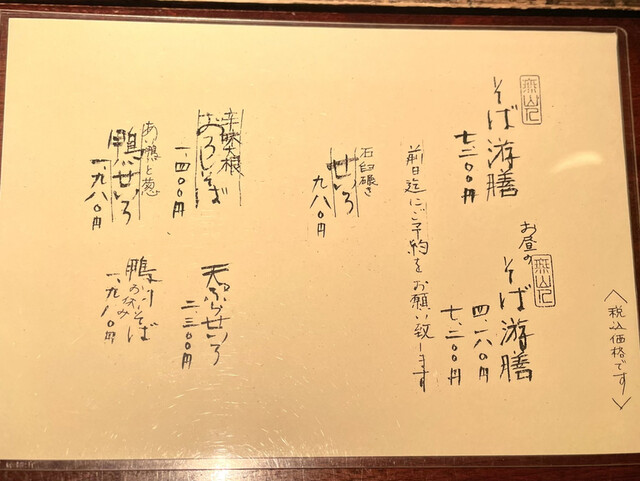 〈税込価格です〉
そば游膳
七.二〇〇円
お昼の
そば游膳
四.一八〇円
七.二〇〇円
前日迄にご予約をお願い致します
石臼碾き
せいろ
九八〇円
辛味大根
おろしそば
一.四〇〇円
天ぷらせいろ
二三〇〇円
あい鴨と葱
鴨せいろ
一.九八〇円
鴨かけそば
お休み
一.九八〇円